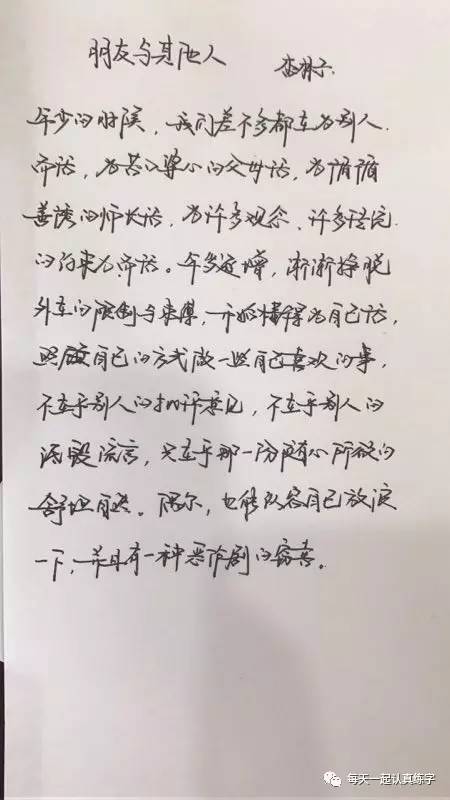 朋友与其他人
年少的时候，我们差不多都在为别人
而活，为苦口婆心的父母活，为循循
善诱的师长活，为许多观念、许多传统
的约束力而活。年岁逐增，渐渐挣脱
外在的限制与束缚，开始懂得为自己活，
照做自己的方式做一些自己喜欢的事，
不在乎别人的批评意见，不在乎别人的
诋毁流言，只在乎那一份随心所欲的
舒坦自然。偶尔，也能纵容自己放浪
一下，并且有一种恶作剧的窃喜。
每天一起认真练字